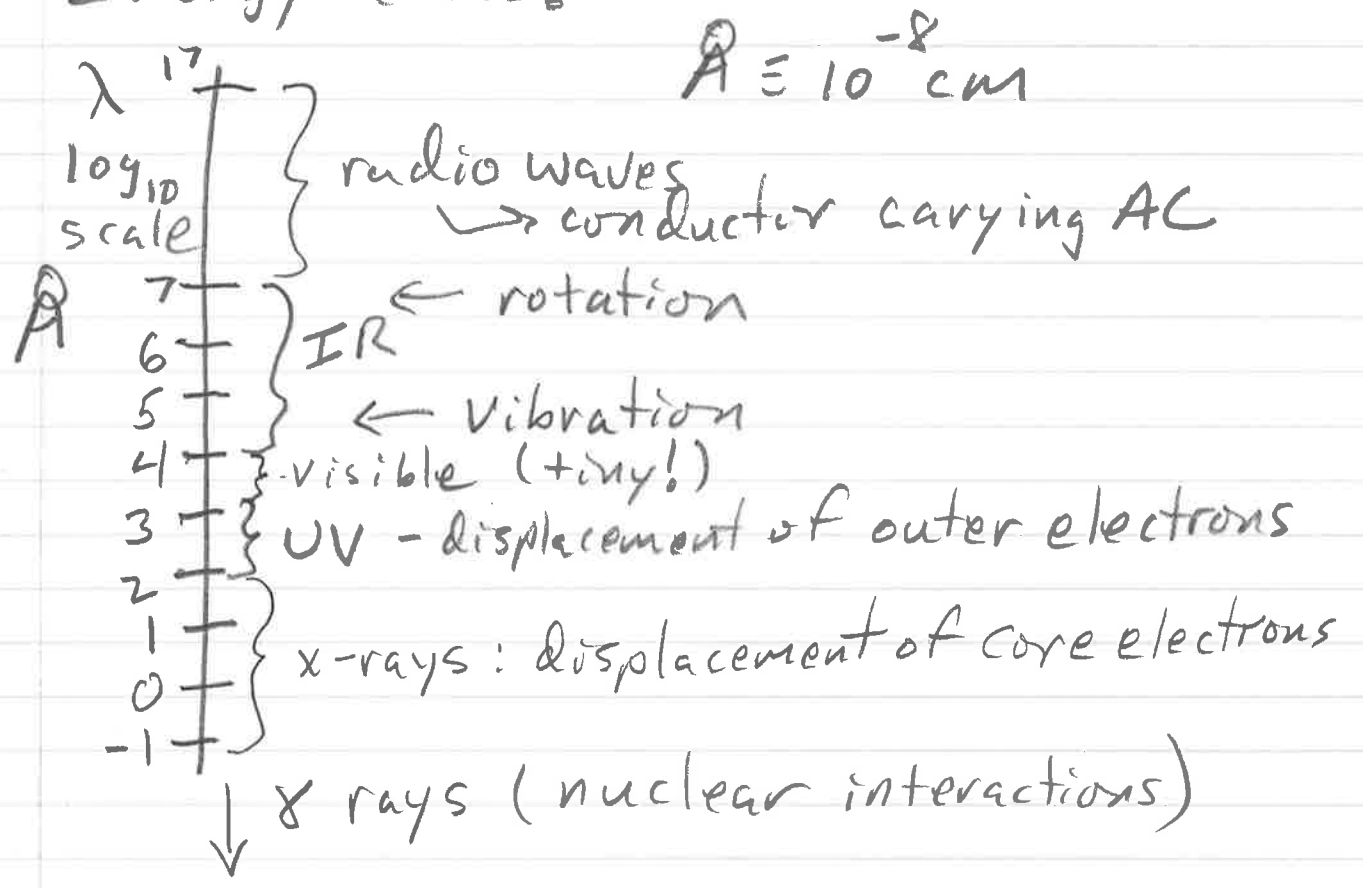 Å ≡ 10⁻⁸ cm
λ 17
log₁₀
scale
Å
radio waves
↳ conductor carying AC
7
← rotation
6
IR
5
← vibration
4
visible (tiny!)
3
UV - displacement of outer electrons
2
1
x-rays: displacement of core electrons
0
-1
↓ γ rays (nuclear interactions)